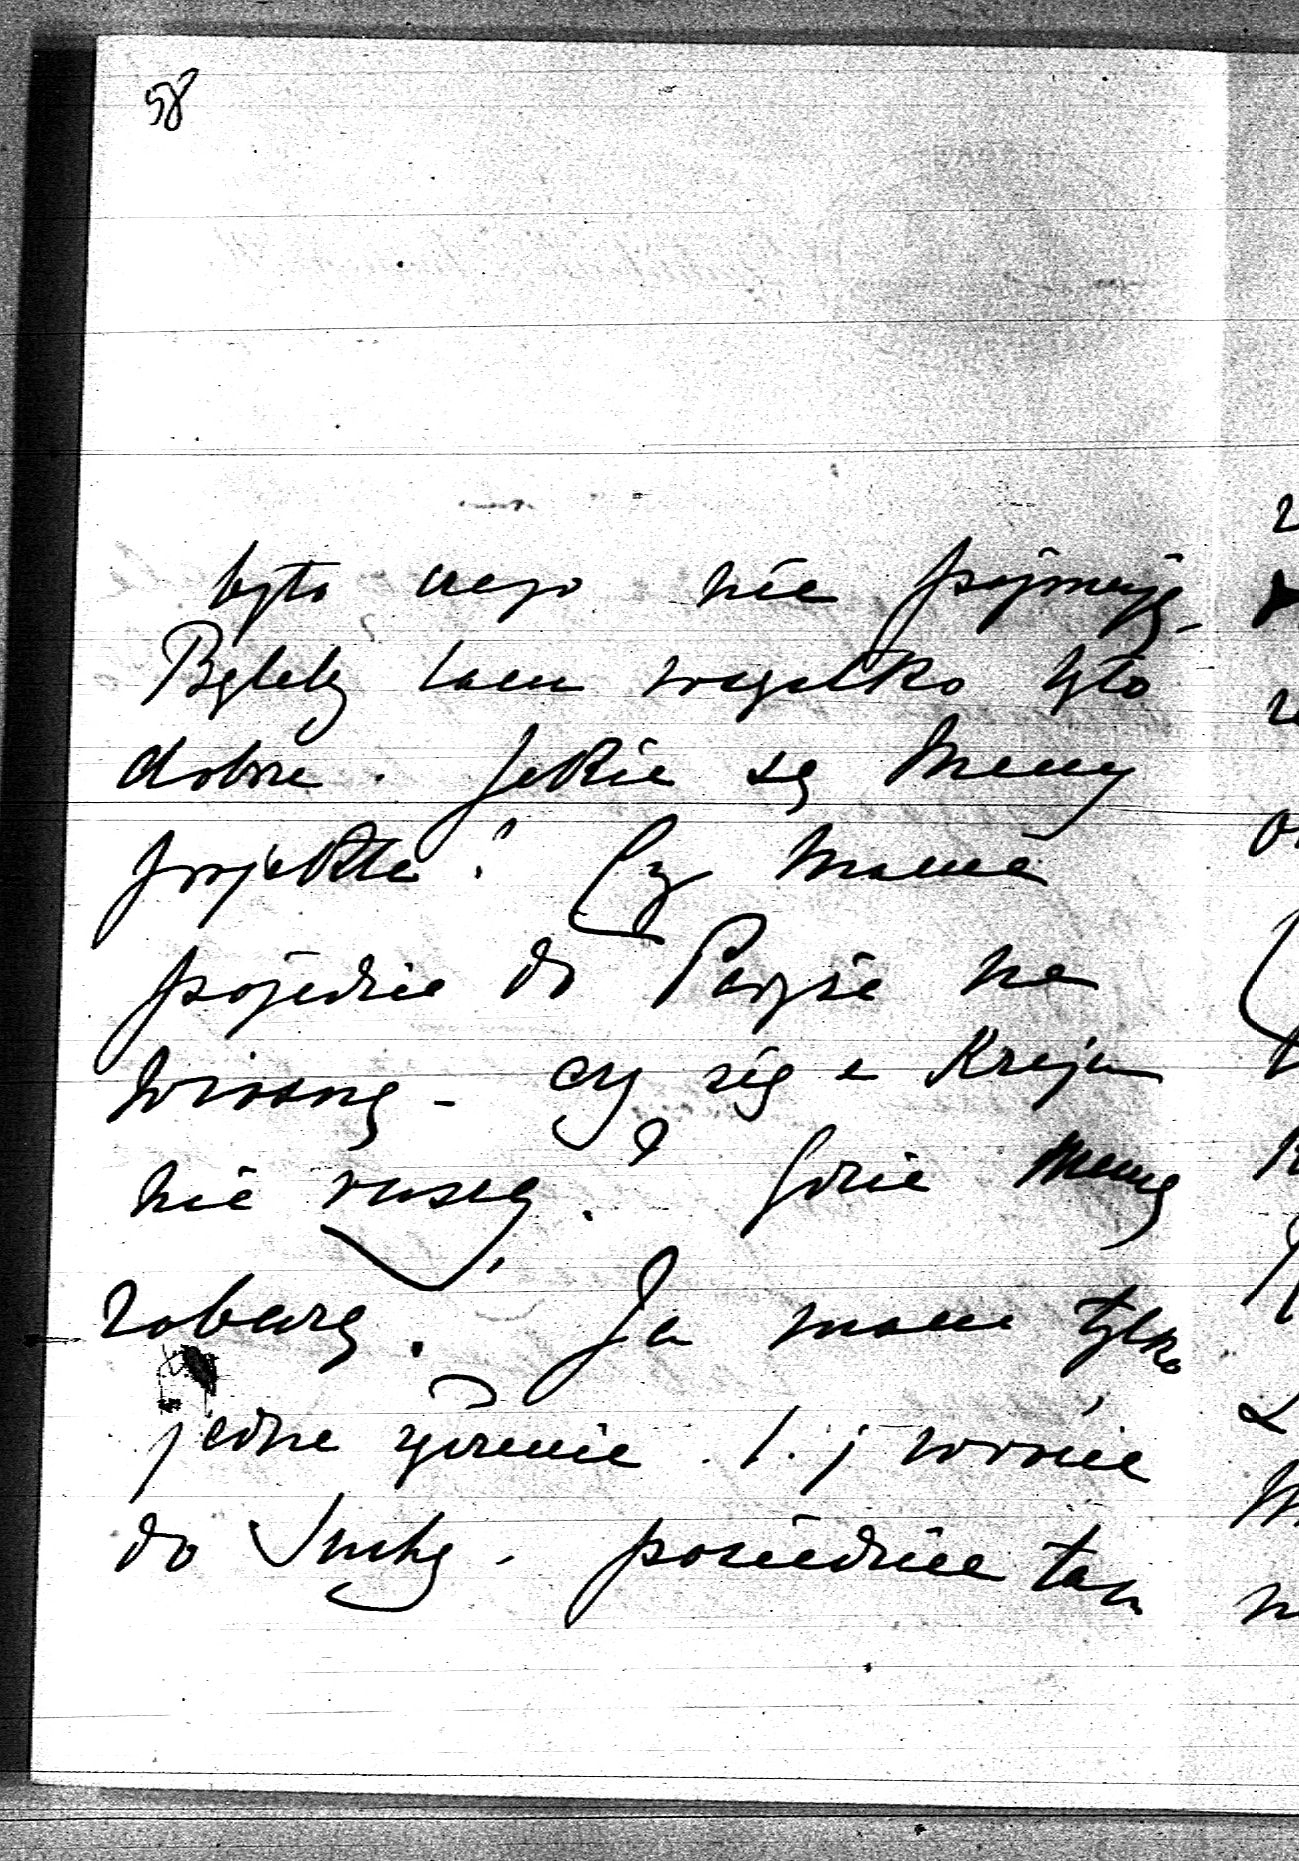 58
było czego nie pojmuję -
Byleby tam wszystko było
dobrze. Jakie są Mamy
projekta? Czy Mama
pojedzie do Paryża na
wiosnę - czy się z Kraju
nie ruszą? Gdzie Mamę
zobaczę. Ja mam tylko
jedne życzenie. t. j wrócić
do Suchy - posiedzieć tam